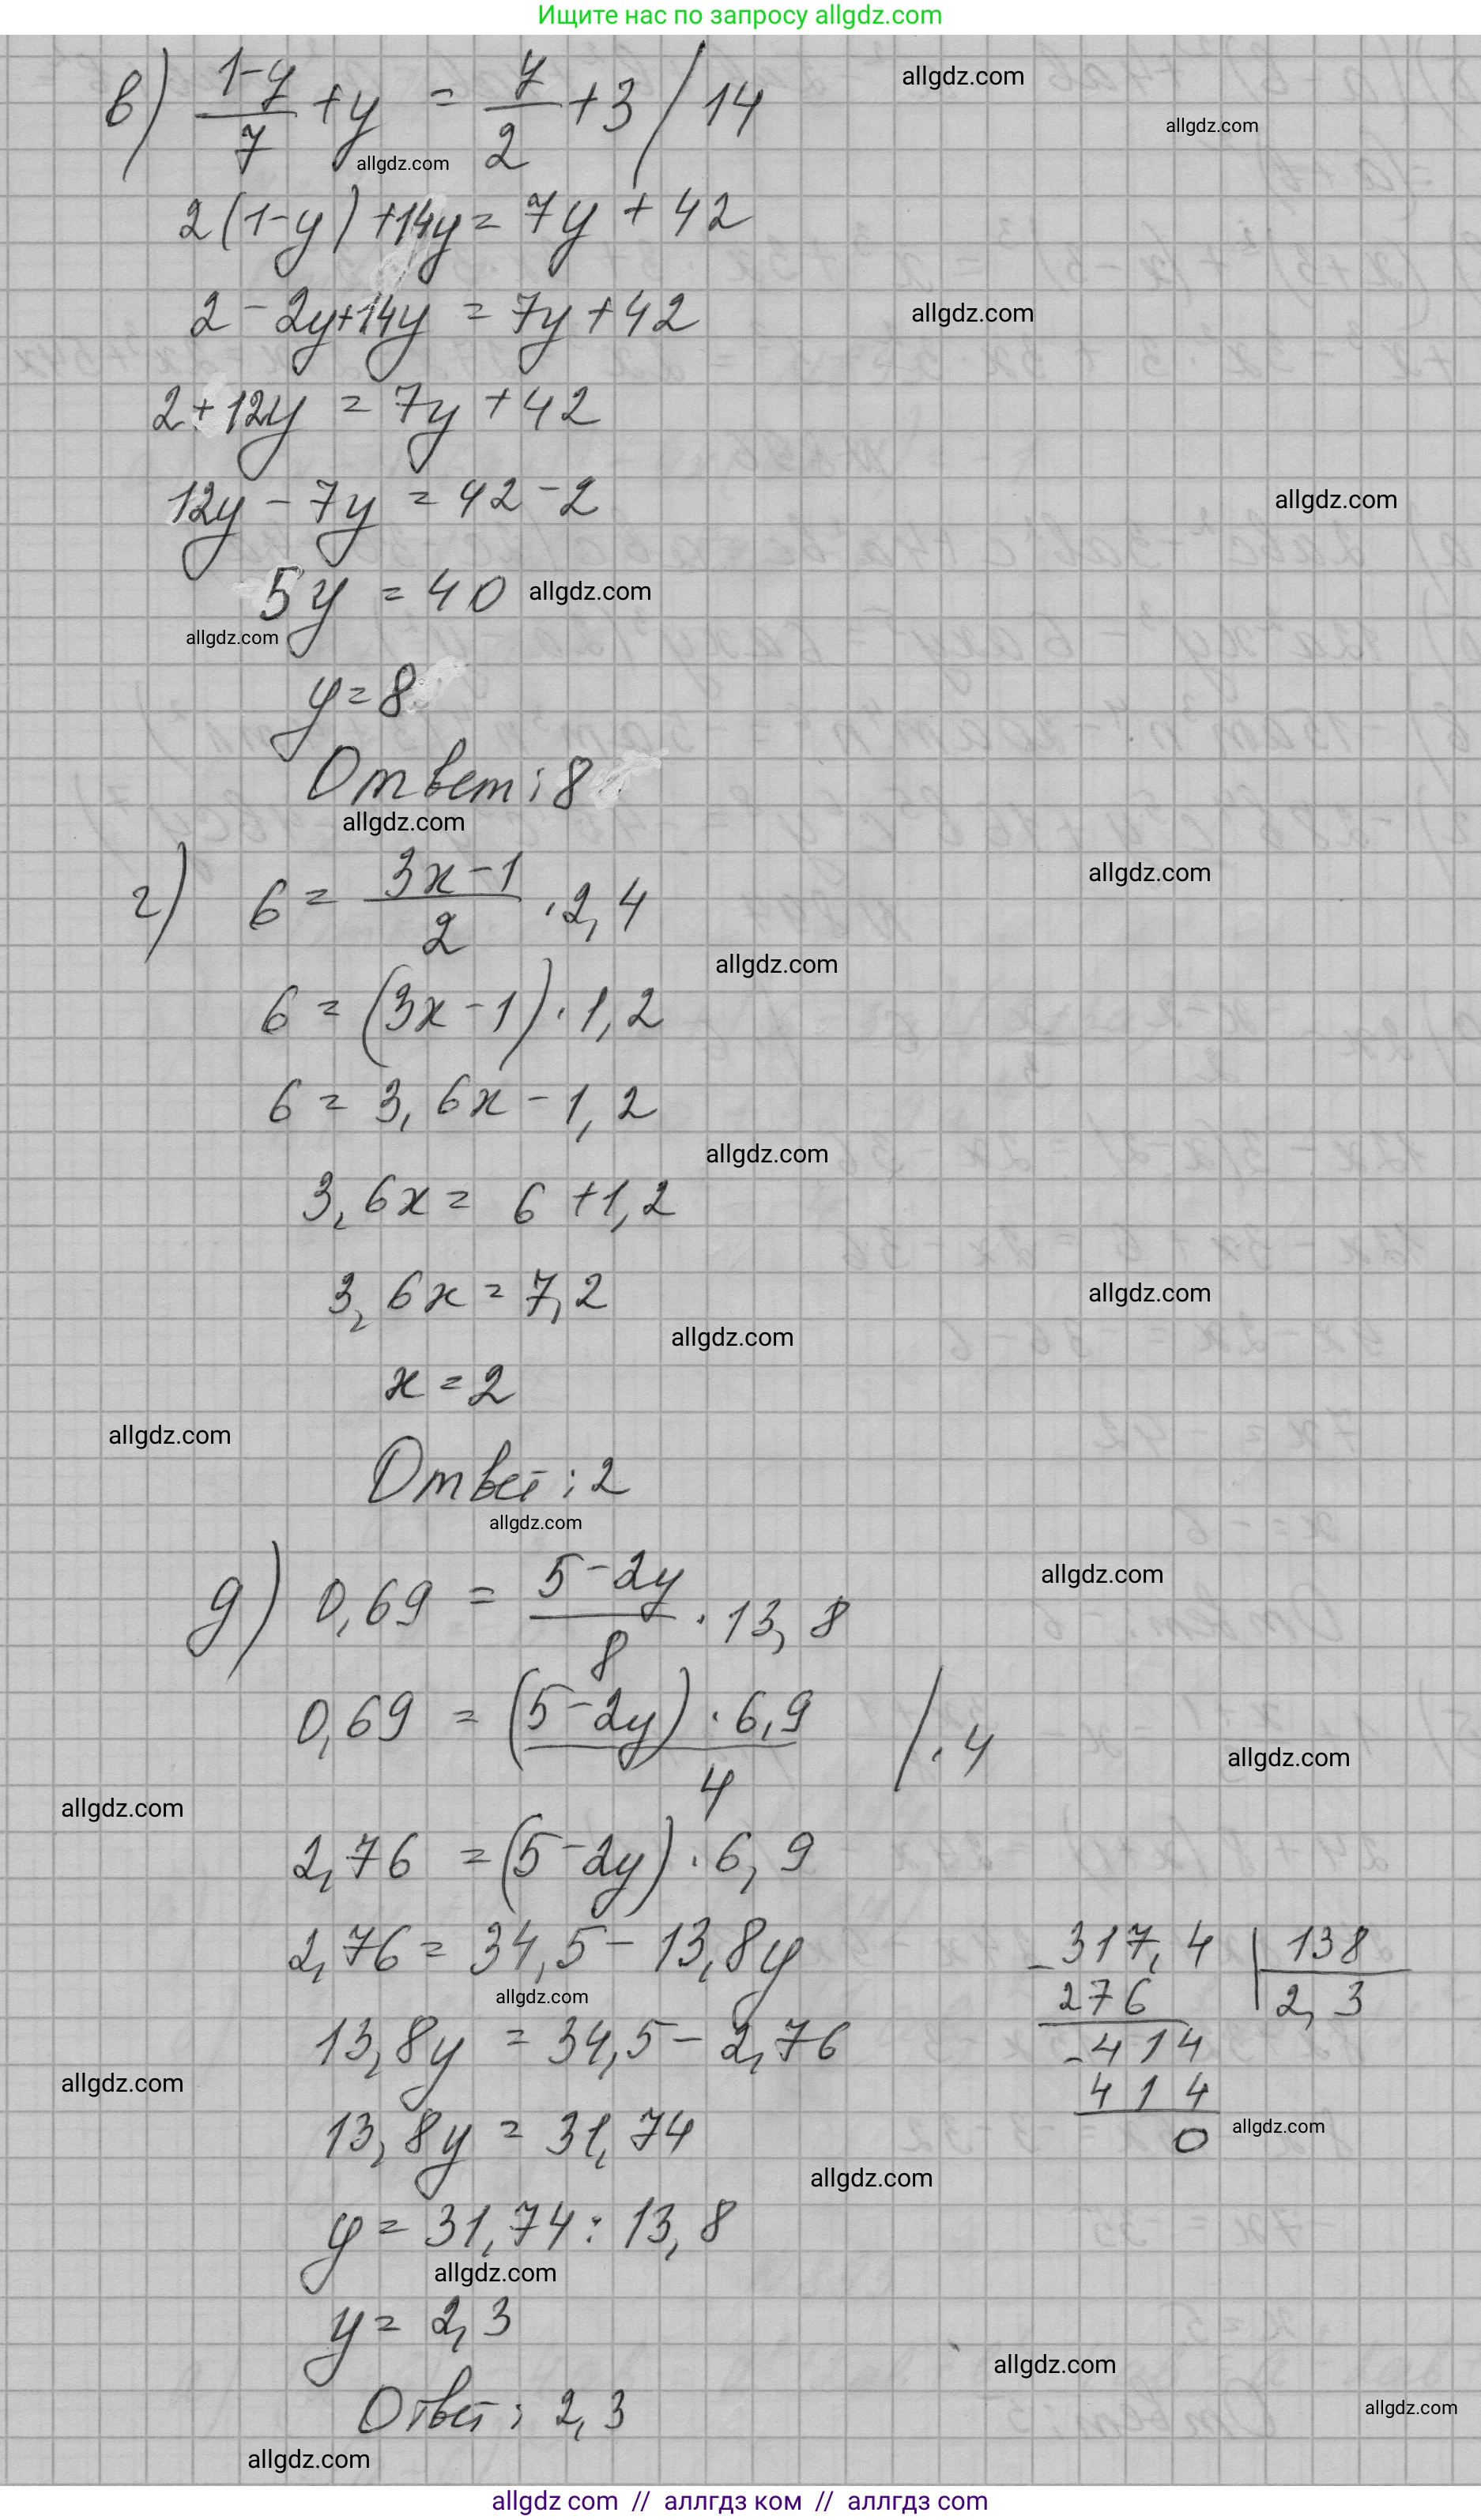 Ищите нас по запросу allgdz.com
в) (1-y)/7 + y = y/2 + 3 / 14
allgdz.com
allgdz.com
allgdz.com
2(1-y)+14y = 7y + 42
2 - 2y+14y = 7y + 42
allgdz.com
2 + 12y = 7y + 42
12y - 7y = 42 - 2
allgdz.com
5y = 40
allgdz.com
allgdz.com
y = 8
Ответ: 8
allgdz.com
г) 6 = (3x-1)/2 · 2,4
allgdz.com
allgdz.com
6 = (3x-1)·1,2
6 = 3,6x - 1,2
allgdz.com
3,6x = 6 + 1,2
3,6x = 7,2
allgdz.com
allgdz.com
x = 2
allgdz.com
Ответ: 2
allgdz.com
д) 0,69 = (5-2y)/8 · 13,8
allgdz.com
0,69 = (5-2y)·6,9/4 /·4
allgdz.com
allgdz.com
2,76 = (5-2y)·6,9
2,76 = 34,5 - 13,8y
allgdz.com
13,8y = 34,5 - 2,76
allgdz.com
13,8y = 31,74
allgdz.com
y = 31,74 : 13,8
allgdz.com
y = 2,3
Ответ: 2,3
allgdz.com
-317,4 | 138
276 2,3
-414
414
0
allgdz.com
allgdz.com
allgdz.com
allgdz com // аллгдз ком // аллгдз com